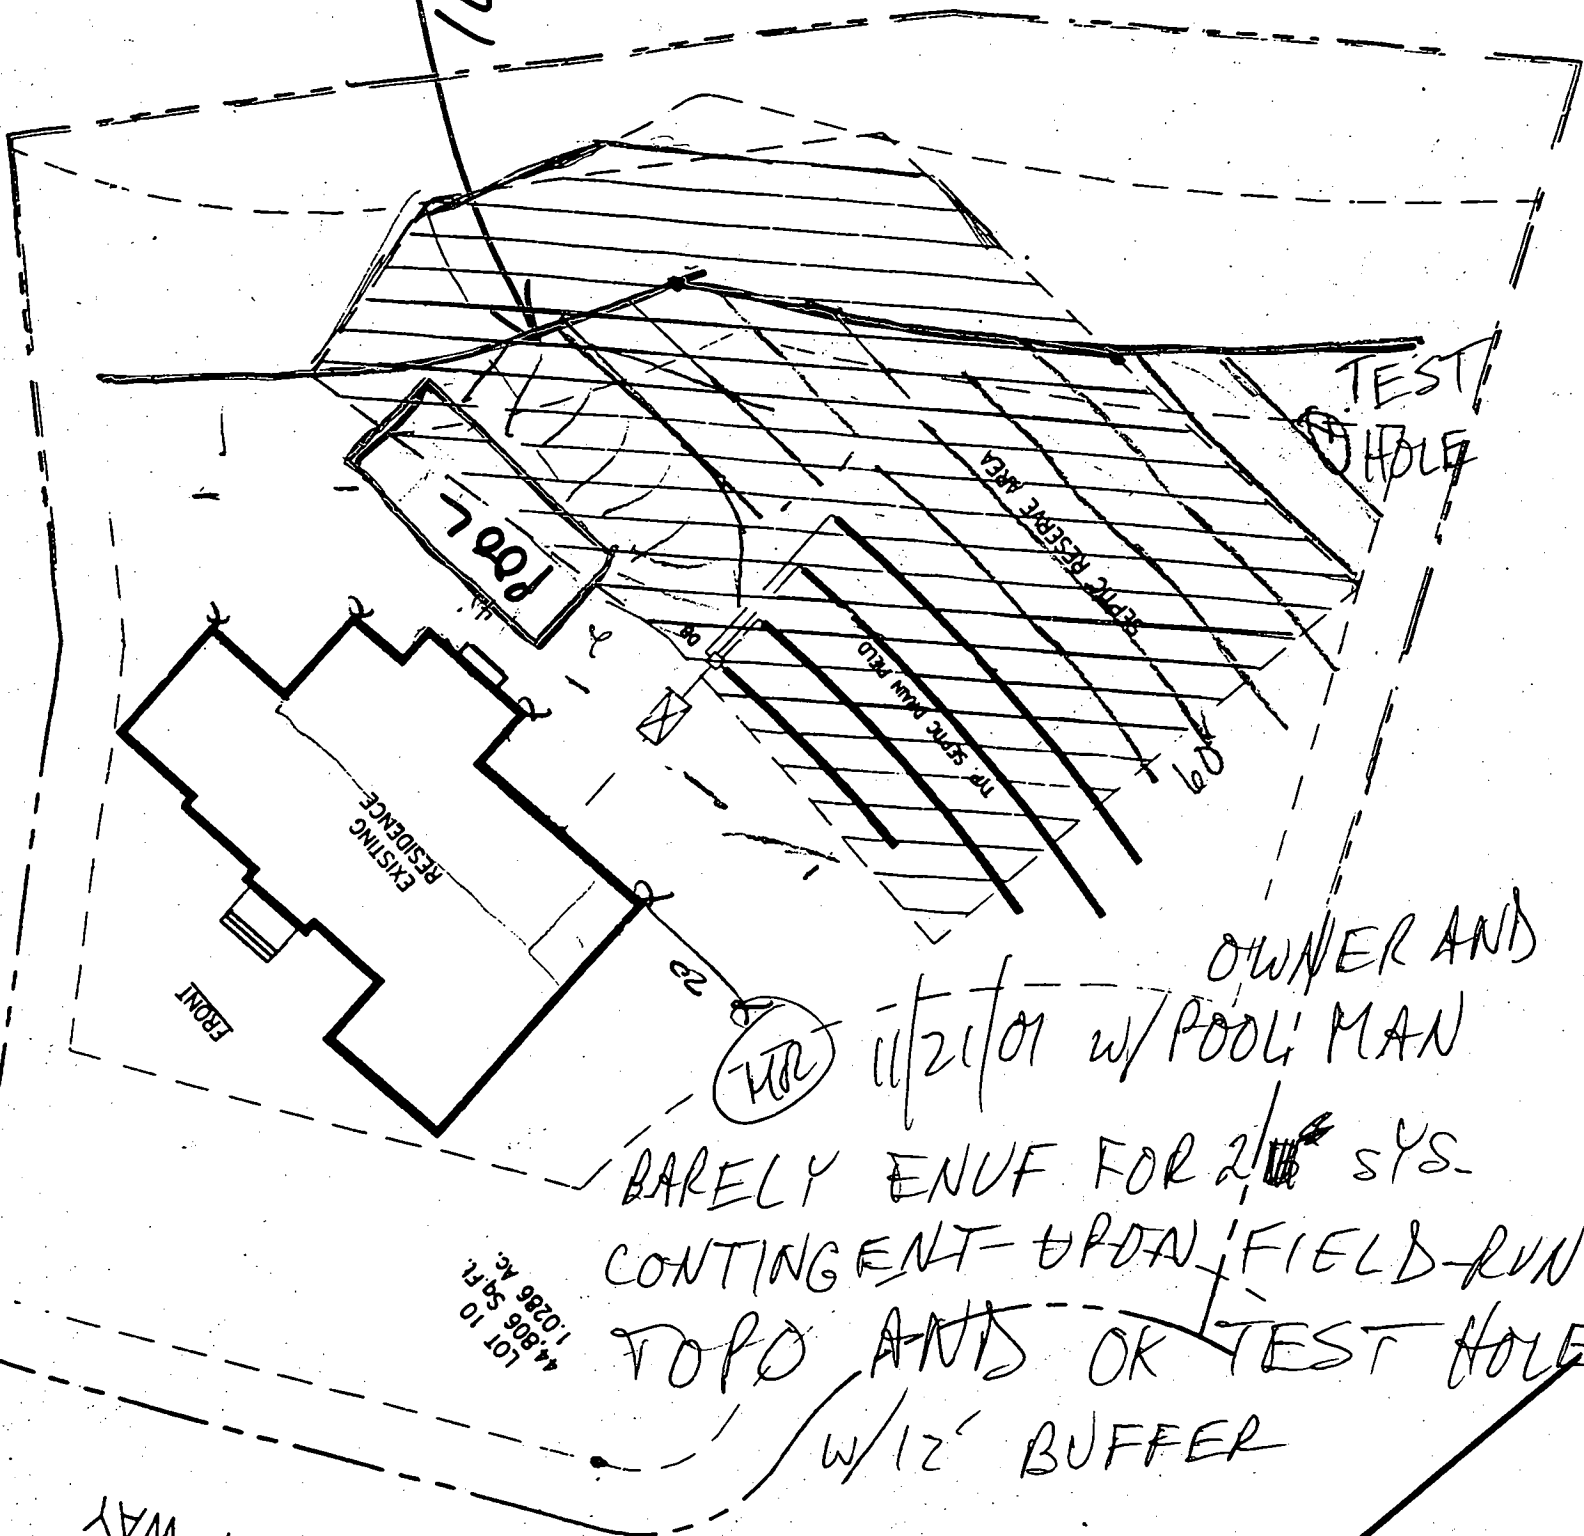 TEST
HOLE
POOL
SEPTIC RESERVE AREA
DB
TYP. SEPTIC DRAIN FIELD
60
EXISTING
RESIDENCE
FRONT
20
OWNER AND
MR 11/21/01 W/ POOL MAN
BARELY ENUF FOR 2 SYS.
CONTINGENT UPON FIELD-RUN
TOPO AND OK TEST HOLE
W/12' BUFFER
LOT 10
44,806 Sq.Ft.
1.0286 Ac.
WAY